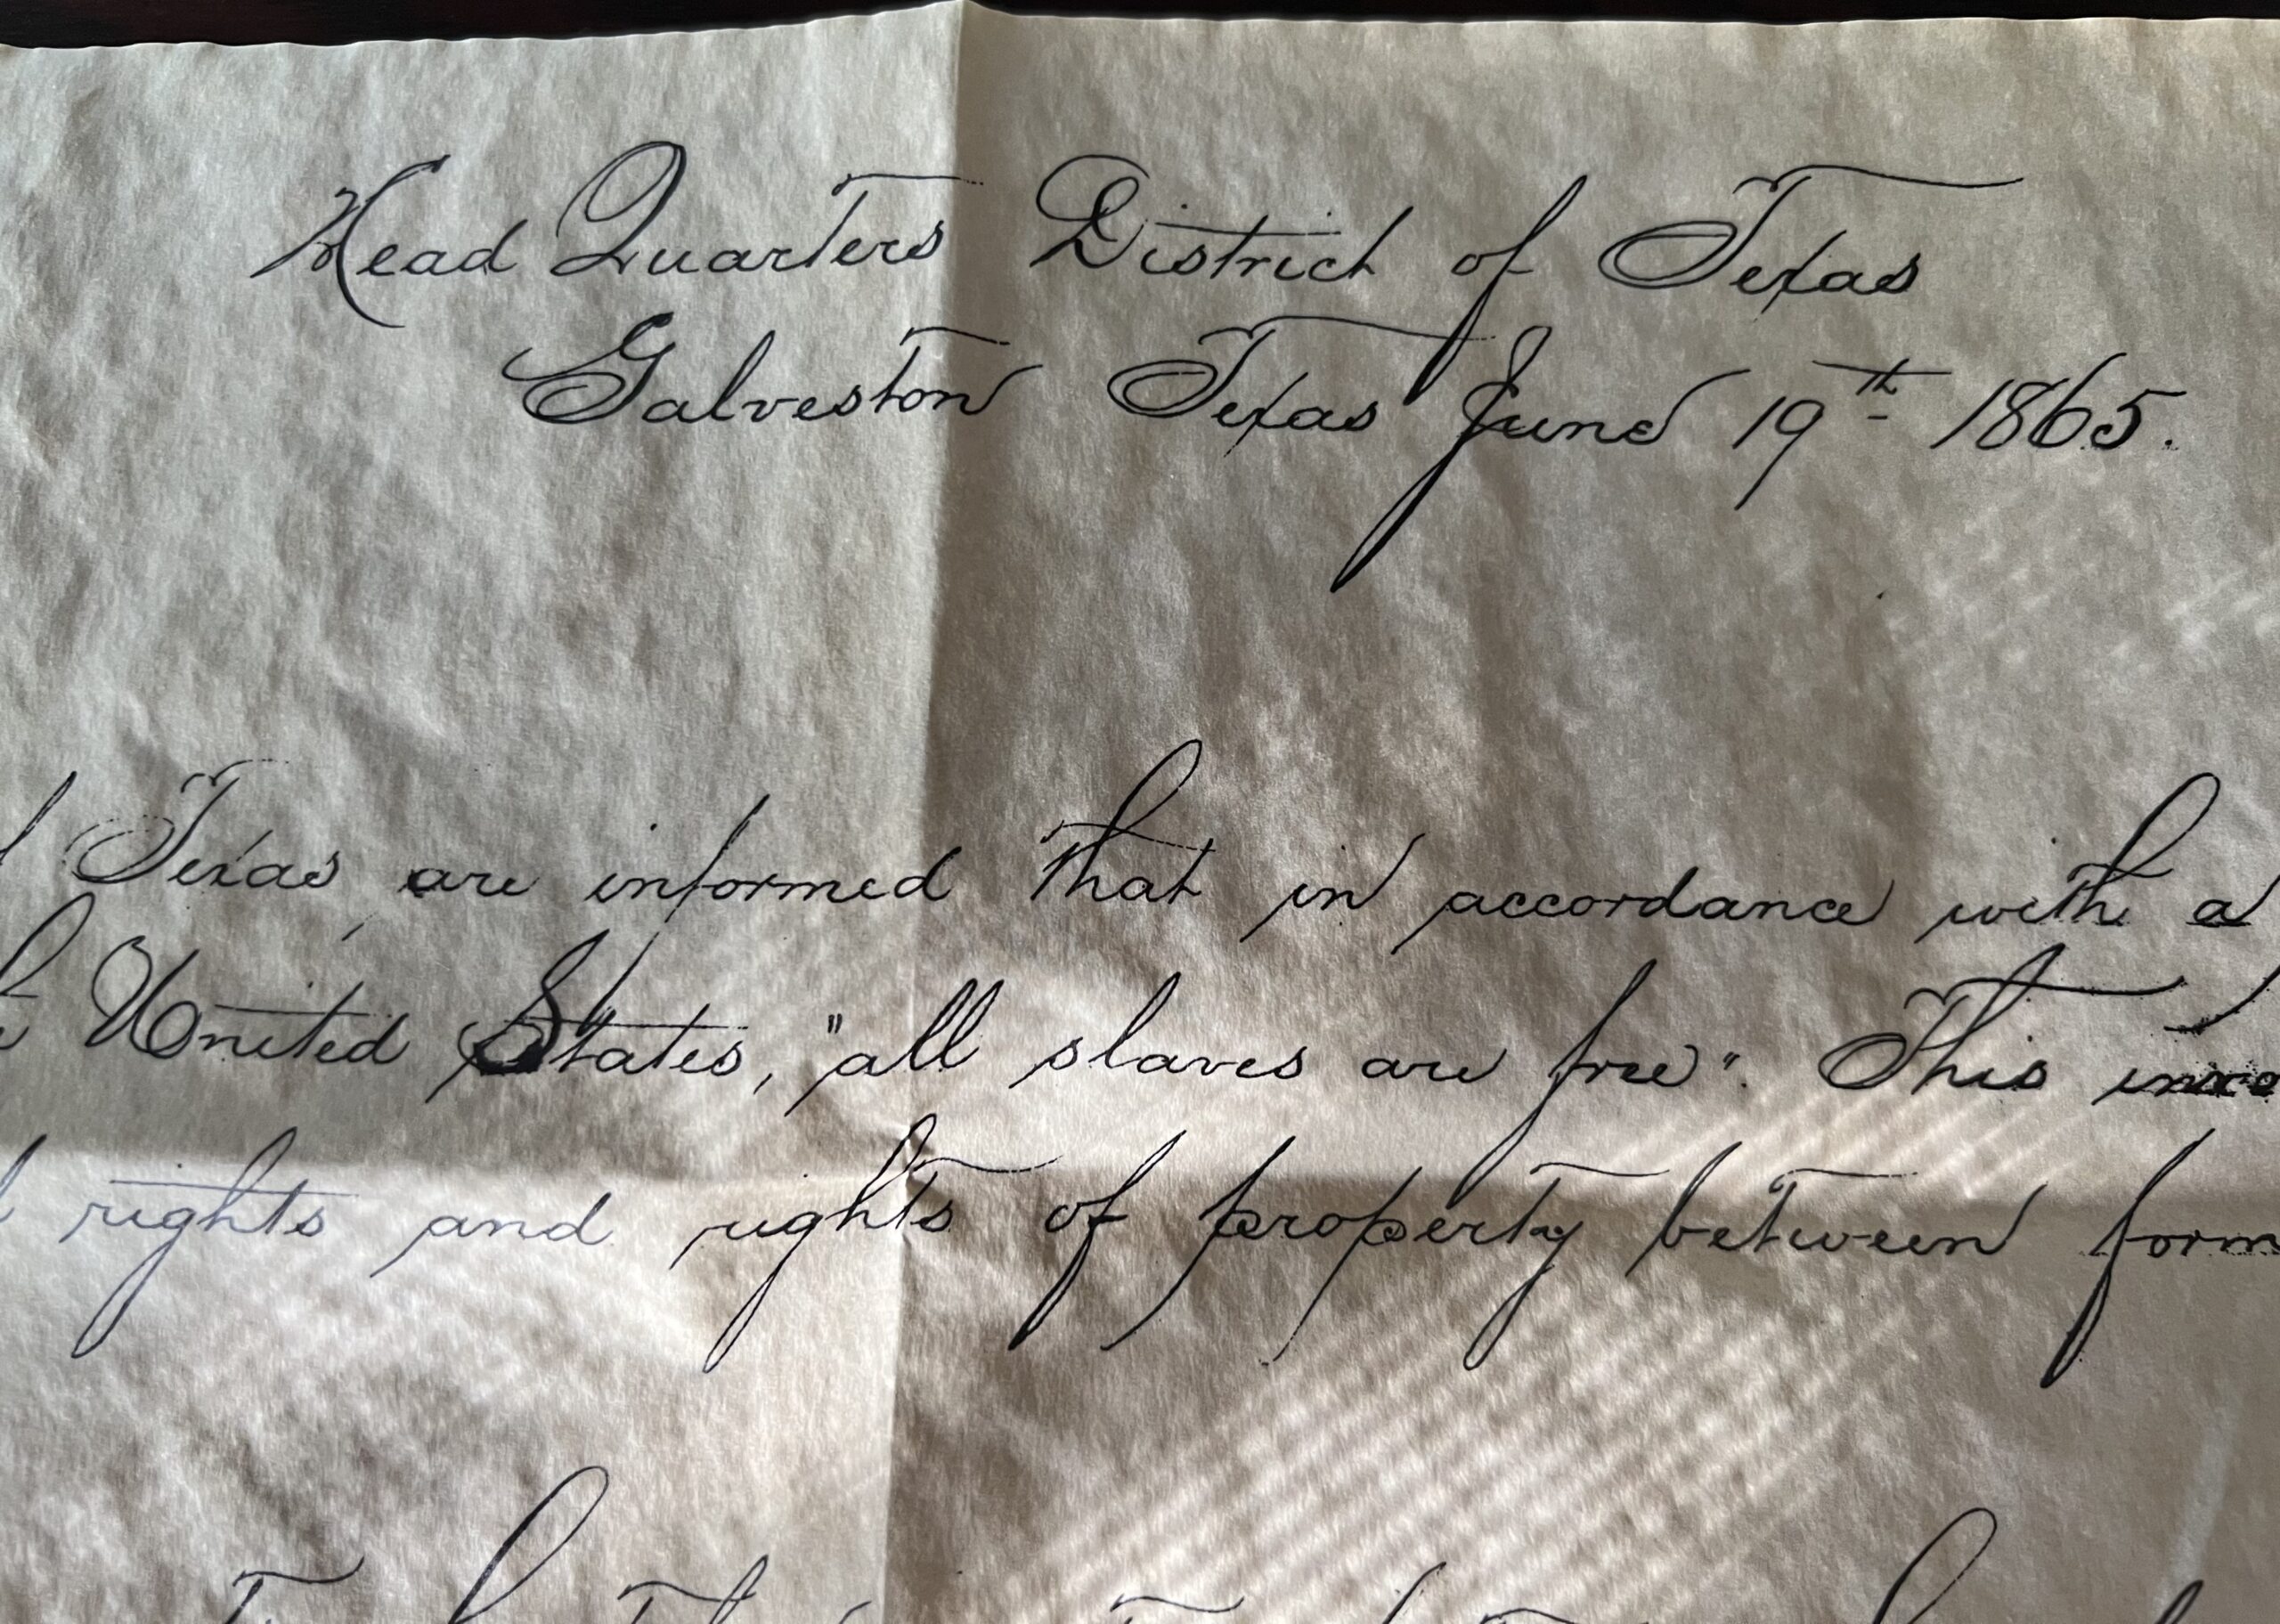 Head Quarters District of Texas
Galveston Texas June 19th 1865.
Texas, are informed that in accordance with a
United States, "all slaves are free". This
rights and rights of property between form